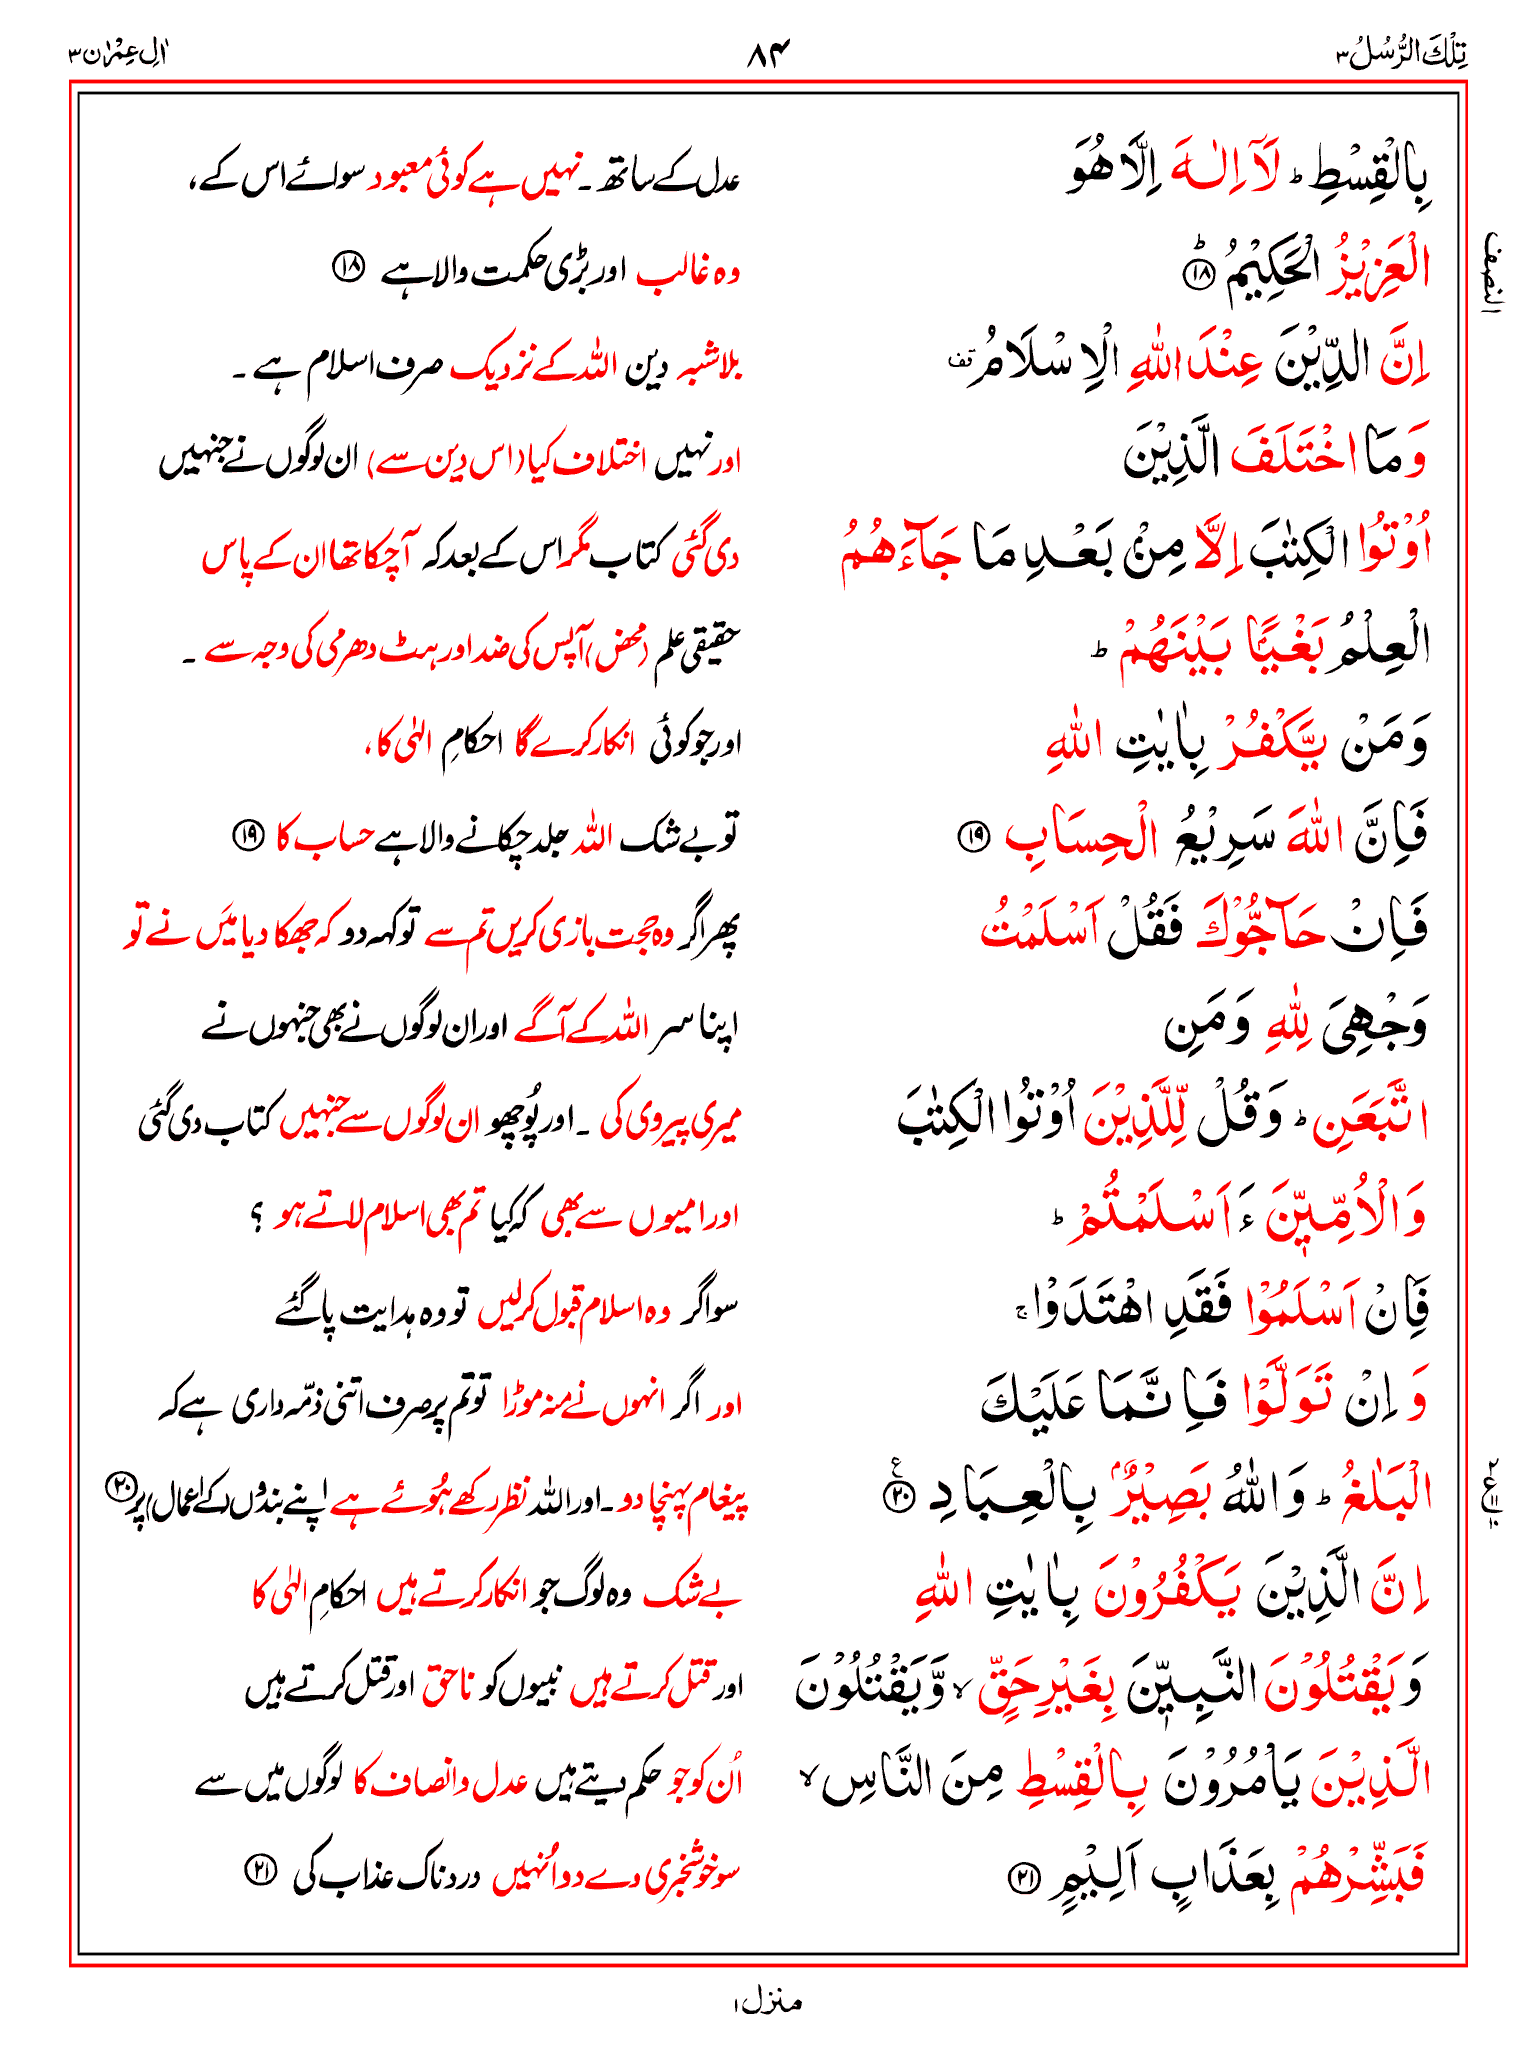 تِلْكَ الرُّسُلُ ۳ ۸۴ اٰلِ عِمْرٰن ۳
بِالْقِسْطِ ؕ لَاۤ اِلٰهَ اِلَّا هُوَ عدل کے ساتھ ۔ نہیں ہے کوئی معبود سوائے اس کے،
النصف
الْعَزِیْزُ الْحَكِیْمُ ؕ ۱۸ وہ غالب اور بڑی حکمت والا ہے ۱۸
اِنَّ الدِّیْنَ عِنْدَ اللّٰهِ الْاِسْلَامُ قف بلاشبہ دین اللہ کے نزدیک صرف اسلام ہے ۔
وَمَا اخْتَلَفَ الَّذِیْنَ اور نہیں اختلاف کیا (اس دین سے) ان لوگوں نے جنہیں
اُوْتُوا الْكِتٰبَ اِلَّا مِنْۢ بَعْدِ مَا جَآءَهُمُ دی گئی کتاب مگر اس کے بعد کہ آچکا تھا ان کے پاس
الْعِلْمُ بَغْیًۢا بَیْنَهُمْ ؕ حقیقی علم (محض) آپس کی ضد اور ہٹ دھرمی کی وجہ سے ۔
وَمَنْ یَّكْفُرْ بِاٰیٰتِ اللّٰهِ اور جو کوئی انکار کرے گا احکامِ الٰہی کا،
فَاِنَّ اللّٰهَ سَرِیْعُ الْحِسَابِ ۱۹ تو بے شک اللہ جلد چکانے والا ہے حساب کا ۱۹
فَاِنْ حَآجُّوْكَ فَقُلْ اَسْلَمْتُ پھر اگر وہ حجت بازی کریں تم سے تو کہہ دو کہ جھکا دیا میَں نے تو
وَجْهِیَ لِلّٰهِ وَمَنِ اپنا سر اللہ کے آگے اور ان لوگوں نے بھی جنہوں نے
اتَّبَعَنِ ؕ وَقُلْ لِّلَّذِیْنَ اُوْتُوا الْكِتٰبَ میری پیروی کی ۔ اور پُوچھو ان لوگوں سے جنہیں کتاب دی گئی
وَالْاُمِّیّٖنَ ءَاَسْلَمْتُمْ ؕ اور امیوں سے بھی کہ کیا تم بھی اسلام لاتے ہو ؟
فَاِنْ اَسْلَمُوْا فَقَدِ اهْتَدَوْا ۚ سو اگر وہ اسلام قبول کرلیں تو وہ ہدایت پاگئے
وَاِنْ تَوَلَّوْا فَاِنَّمَا عَلَیْكَ اور اگر انہوں نے منہ موڑا تو تم پر صرف اتنی ذمّہ داری ہے کہ
الْبَلٰغُ ؕ وَاللّٰهُ بَصِیْرٌۢ بِالْعِبَادِ ۲۰ ع پیغام پہنچا دو ۔ اور اللہ نظر رکھے ہُوئے ہے اپنے بندوں (کے اعمال) پر ۲۰
اِنَّ الَّذِیْنَ یَكْفُرُوْنَ بِاٰیٰتِ اللّٰهِ بے شک وہ لوگ جو انکار کرتے ہیں احکامِ الٰہی کا
وَیَقْتُلُوْنَ النَّبِیّٖنَ بِغَیْرِ حَقٍّ ۙ وَّیَقْتُلُوْنَ اور قتل کرتے ہیں نبیوں کو ناحق اور قتل کرتے ہیں
الَّذِیْنَ یَاْمُرُوْنَ بِالْقِسْطِ مِنَ النَّاسِ ۙ اُن کو جو حکم دیتے ہیں عدل وانصاف کا لوگوں میں سے
فَبَشِّرْهُمْ بِعَذَابٍ اَلِیْمٍ ۲۱ سو خوشخبری دے دو اُنہیں دردناک عذاب کی ۲۱
منزل ۱